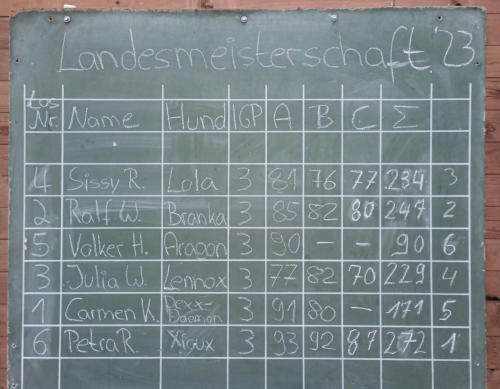 Landesmeisterschaft '23
Los Nr. Name Hund IGP A B C Σ
4 Sissy R. Lola 3 81 76 77 234 3
2 Ralf W. Branka 3 85 82 80 247 2
5 Volker H. Aragon 3 90 – – 90 6
3 Julia W. Lennox 3 77 82 70 229 4
1 Carmen K. 3 91 80 – 171 5
6 Petra R. Xioux 3 93 92 87 272 1